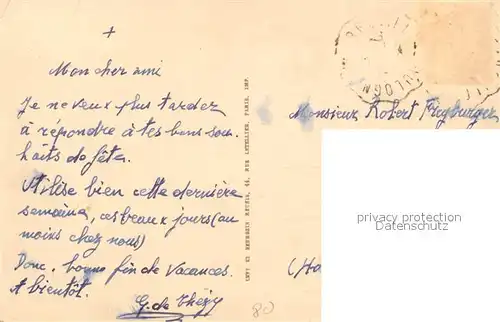 +
Mon cher ami
Je ne veux plus tarder
à répondre à tes bons sou-
haits de fête.
Utilise bien cette dernière
semaine, ces beaux jours (au
moins chez nous)
Donc, bonne fin de Vacances.
A bientôt.
G. de Thézy
Monsieur Robert Freyburger
(Ha
80
LEVY ET NEURDEIN RÉUNIS, 44, RUE LETELLIER, PARIS, IMP.
privacy protection
Datenschutz